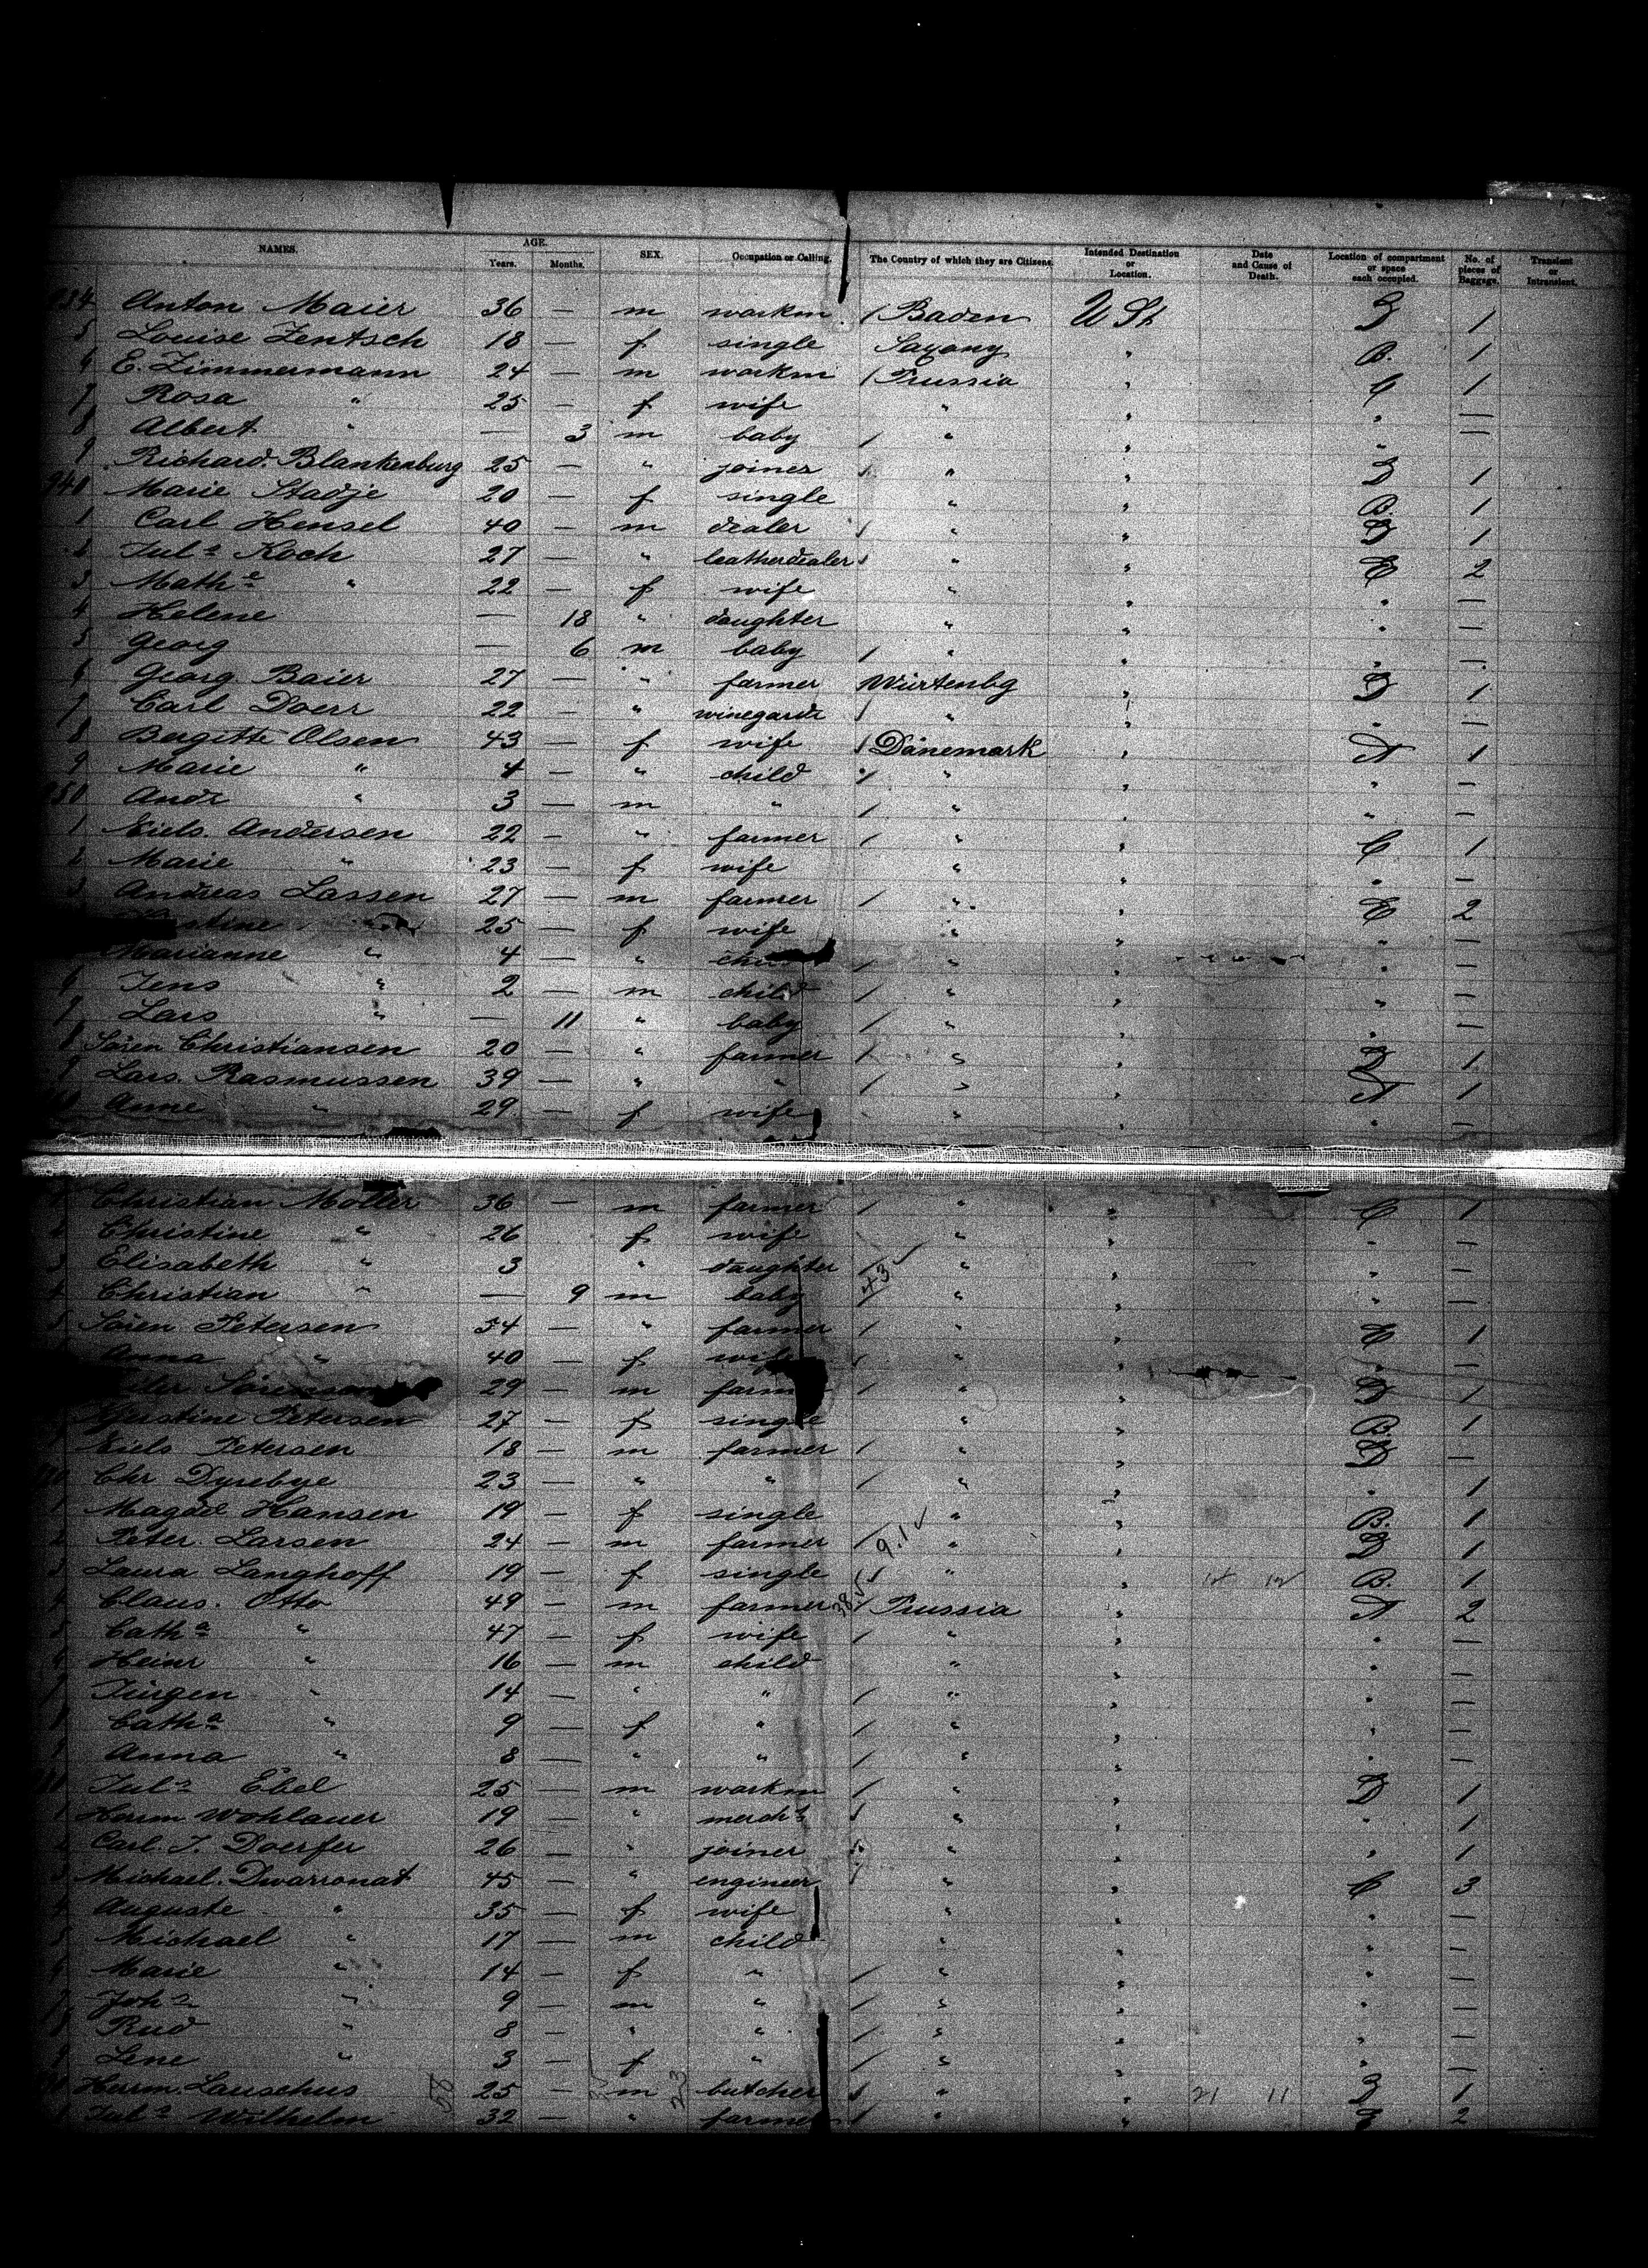 NAMES. AGE. Years. Months. SEX. Occupation or Calling. The Country of which they are Citizens. Intended Destination or Location. Date and Cause of Death. Location of compartment or space each occupied. No. of pieces of Baggage. Transient or Intransient.
934 Anton Maier 36 — m workm / Baden U St 1
5 Louise Zentsch 18 — f single Saxony " B. 1
6 E. Zimmermann 24 — m workm / Prussia " C 1
7 Rosa " 25 — f wife " " " —
8 Albert " — 3 m baby / " " " —
9 Richard Blankenburg 25 — " joiner / " " D 1
940 Marie Stadje 20 — f single " " B. 1
1 Carl Hensel 40 — m dealer / " " D 1
2 Jul.s Koch 27 — " leatherdealer / " " E 2
3 Math.e " 22 — f wife " " " —
4 Helene — 18 " daughter " " " —
5 Georg — 6 m baby / " " " —
6 Georg Baier 27 — " farmer Würtenbg " D 1
7 Carl Doerr 22 — " winegardr / " " " —
8 Bergitte Olsen 43 — f wife / Dänemark " A 1
9 Marie " 4 — " child / " " " —
950 Andr " 3 — m " / " " " —
1 Niels. Andersen 22 — " farmer / " " C 1
2 Marie " 23 — f wife " " " —
3 Andreas Lassen 27 — m farmer / " " E 2
stine " 25 — f wife " " " —
Marianne " 4 — " child / " " " —
6 Jens " 2 — m child / " " " —
7 Lars " — 11 " baby / " " " —
8 Sören Christiansen 20 — " farmer / " " D 1
9 Lars. Rasmussen 39 — " " / " " A 1
Anne " 29 — f wife " " " —
Christian Moller 36 — m farmer / " " C 1
2 Christine " 26 f wife " " " —
3 Elisabeth " 3 " daughter / " " " —
4 Christian " — 9 m baby / " " " —
5 Sören Petersen 54 — " farmer / " " E 1
Anna " 40 — f wife / " " " —
Sörensen 29 — m farm / " " D 1
Kjerstine Petersen 27 — f single " " B. 1
Niels Petersen 18 — m farmer / " " D —
970 Chr Dyrebye 23 — " " / " " " 1
1 Magdd Hansen 19 — f single " " B. 1
2 Peter. Larsen 24 — m farmer / " " D 1
3 Laura Langhoff 19 — f single " " B. 1
4 Claus. Otto 49 — m farmer / Prussia " A 2
5 Cath.a " 47 — f wife / " " " —
6 Heinr " 16 — m child " " " —
7 Jürgen " 14 — " " / " " " —
8 Cath.a " 9 — f " / " " " —
9 Anna " 8 — " " / " " " —
980 Jul.s Ebel 25 — m workm / " " D 1
1 Herm Wohlauer 19 — " mercht / " " " 1
2 Carl. J. Doerfer 26 — " joiner / " " " 1
3 Michael. Dwarronat 45 — " engineer " " C 3
4 Auguste " 35 — f wife " " " —
5 Michael " 17 — m child " " " —
6 Marie " 14 — f " / " " " —
7 Joh.s " 9 — m " / " " " —
8 Rud " 8 — " " / " " " —
9 Lene " 3 — f " / " " " —
990 Herm. Lauschus 25 — m butcher / " " 21 11 1
1 Jul.s Wilhelm 32 — " farmer / " " 2